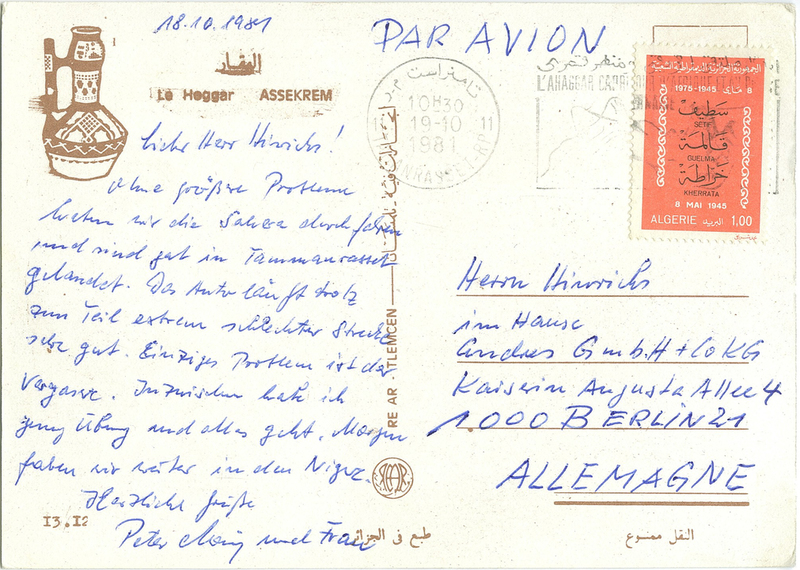 18.10.1981
PAR AVION
الهقار
Le Hoggar ASSEKREM
Liebe Herr Hinrichs!
Ohne größere Probleme
haben wir die Sahara durchfahren
und sind gut in Tammanrasset
gelandet. Das Auto läuft trotz
zum Teil extrem schlechter Strecke
sehr gut. Einziges Problem ist der
Vergaser. Inzwischen hab ich
genug Übung und alles geht. Morgen
fahren wir weiter in den Niger.
Herzliche Grüße
Peter und Frau
13.12
RE AR - TLEMCEN
طبع في الجزائر
النقل ممنوع
تامنراست
10H30
19-10
198
L'AHAGGAR
الجمهورية الجزائرية الديمقراطية الشعبية
1975-1945 8 ماي
سطيف
SETIF
قالمة
GUELMA
خراطة
KHERRATA
8 MAI 1945
ALGERIE البريد 1,00
Herrn Hinrichs
im Hause
Andres GmbH + Co KG
Kaiserin Augusta Allee 4
1000 BERLIN 21
ALLEMAGNE